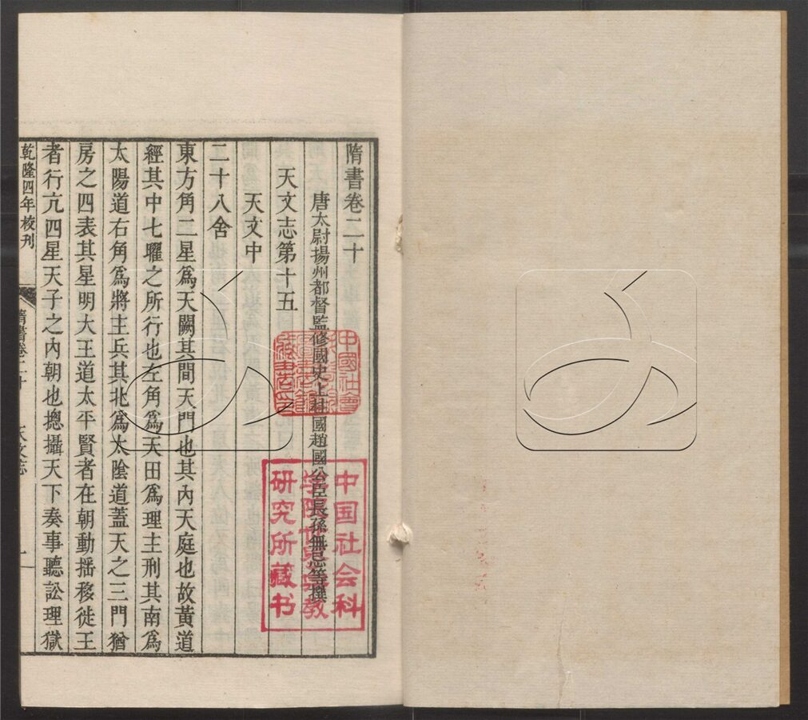 隋書卷二十
唐太尉揚州都督監修國史上柱國趙國公臣長孫無忌等撰
天文志第十五
天文中
二十八舍
東方角二星爲天闕其間天門也其內天庭也故黃道
經其中七曜之所行也左角爲天田爲理主刑其南爲
太陽道右角爲將主兵其北爲太陰道蓋天之三門猶
房之四表其星明大王道太平賢者在朝動揺移徙王
者行亢四星天子之內朝也摠攝天下奏事聽訟理獄
乾隆四年校刊
隋書卷二十
天文志
一
中国社会科
学院
教
研究所藏书
中國社會